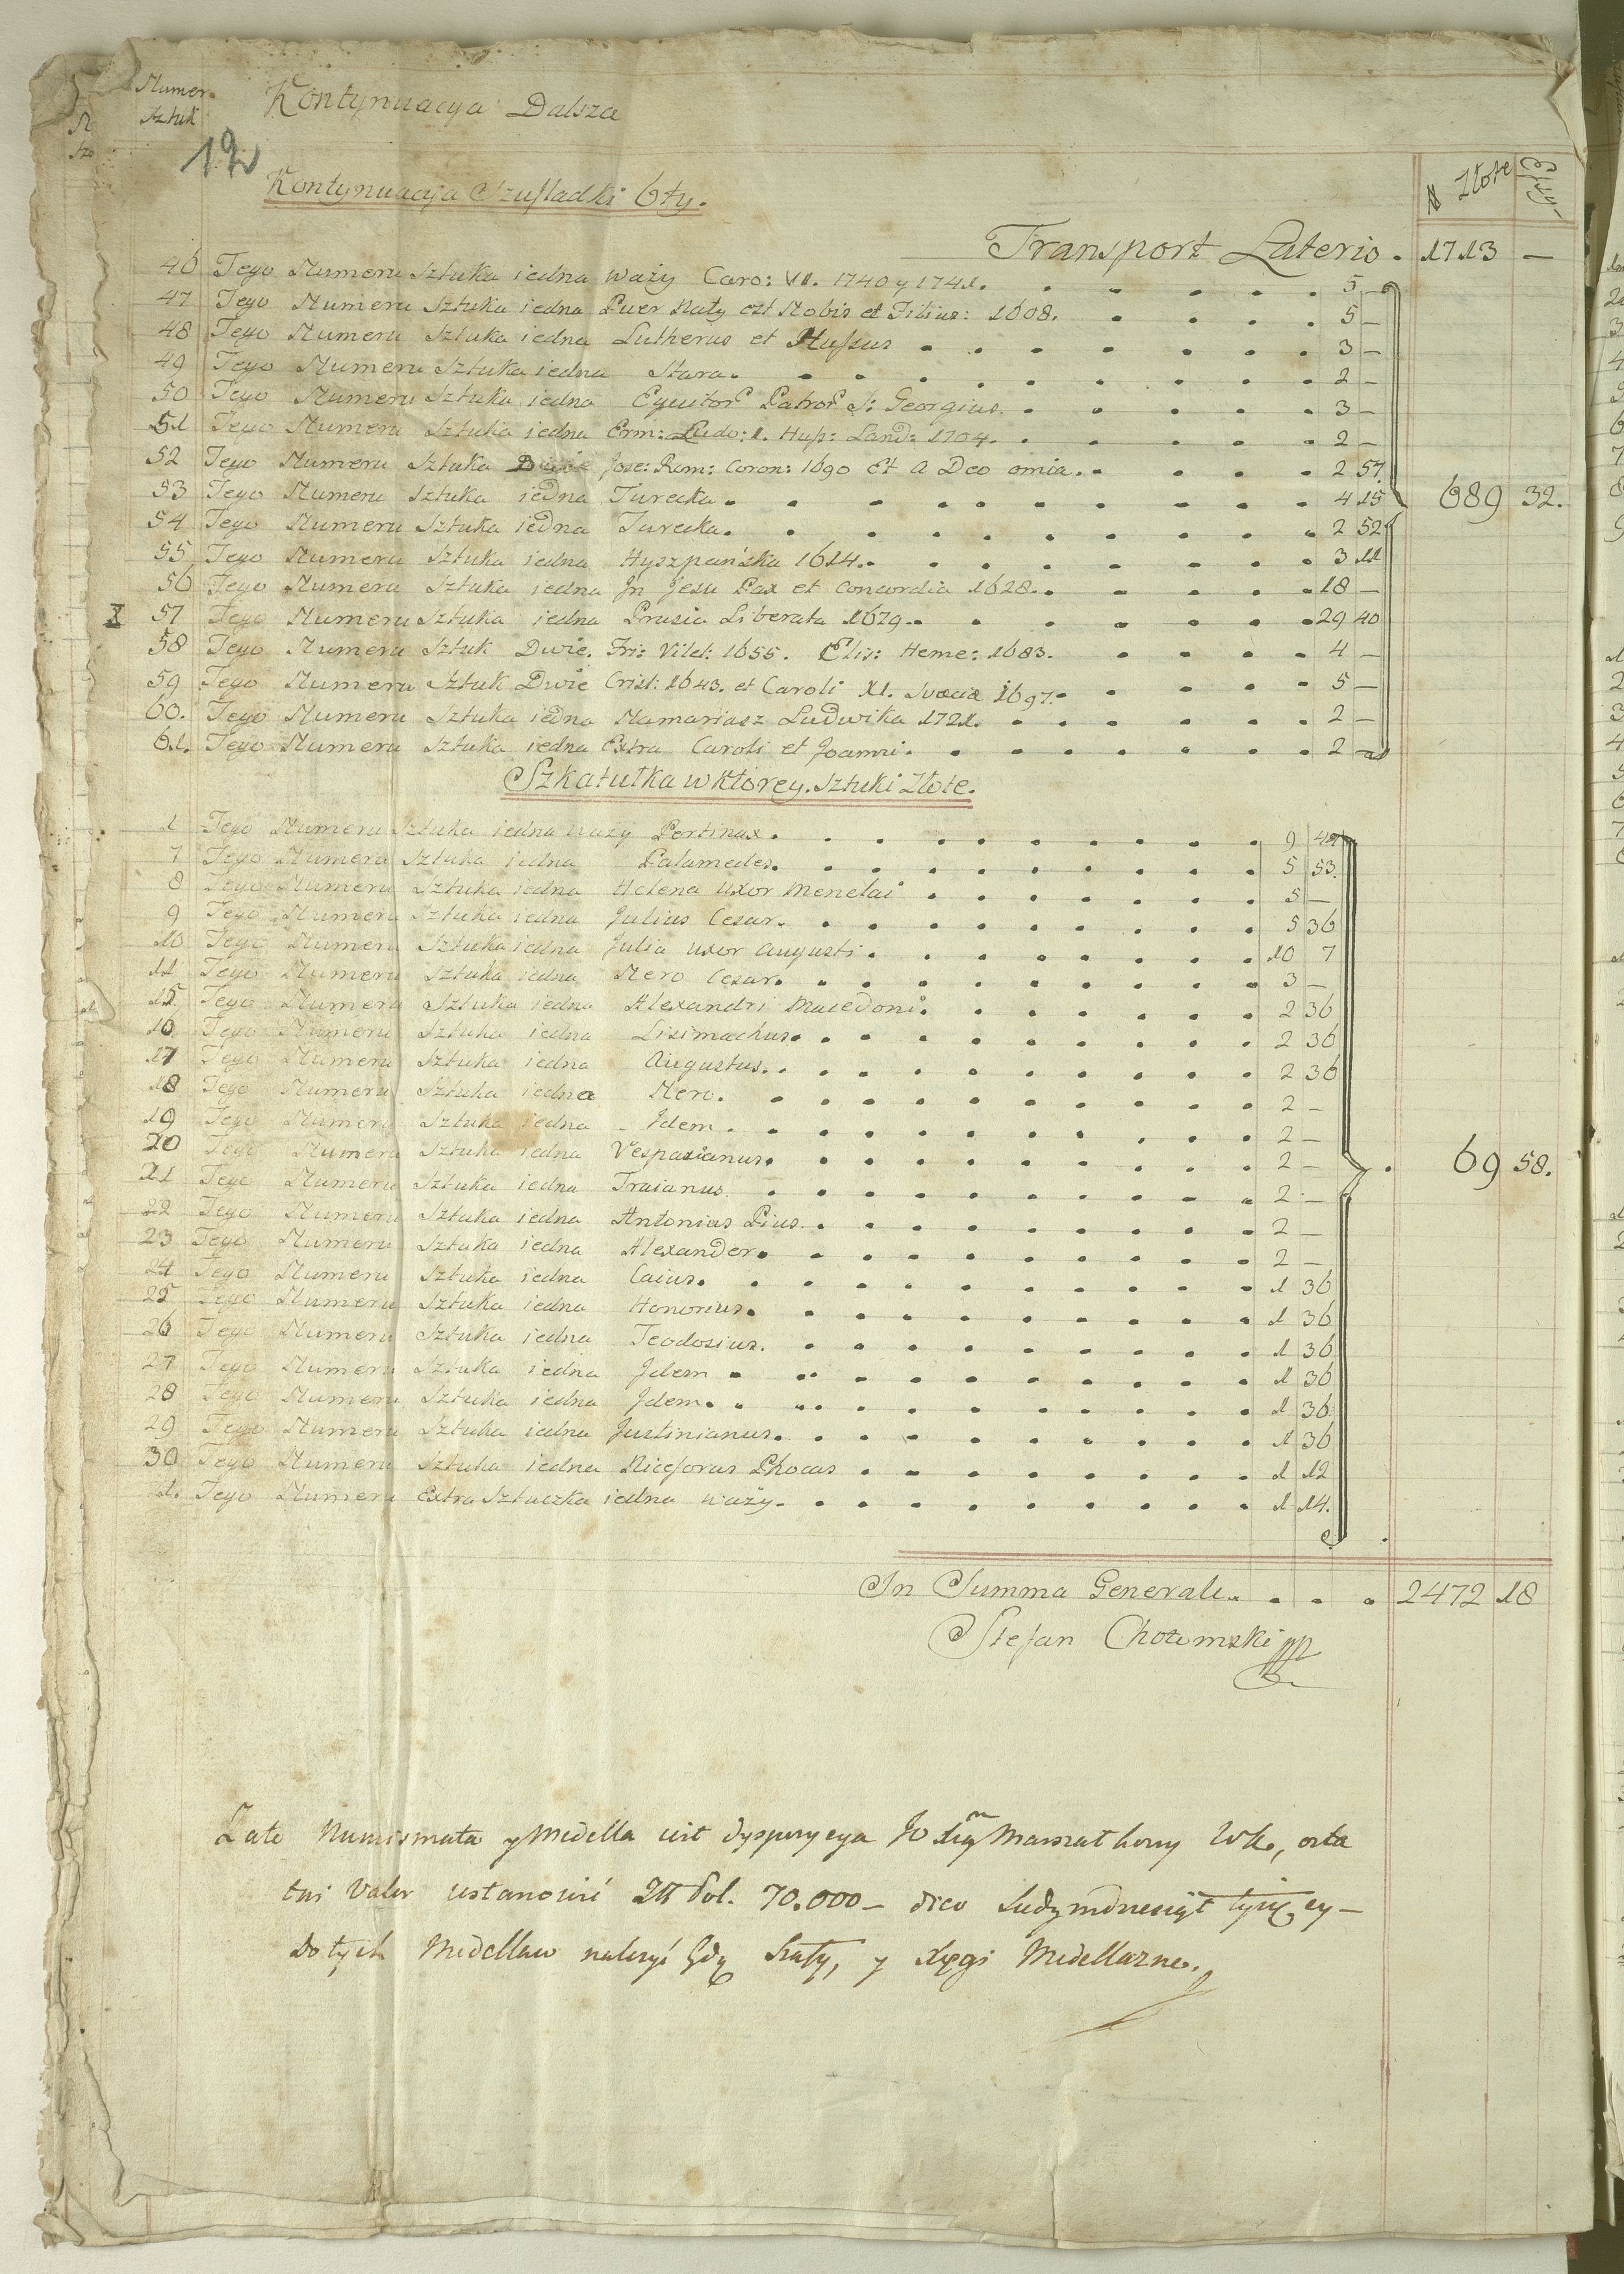 Numer. Kontynuacya Dalsza
Sztuk
12
Kontynuacya Szufladki 6ty.
# Złote
Transport Lateris . 1713 —
46 Tego Numeru Sztuka iedna waży Caro: VI. 1740 y 1741. 5 —
47 Tego Numeru Sztuka iedna Puer Naty est Nobis et Filius: 1608. 5 —
48 Tego Numeru Sztuka iedna Lutherus et Hussus 3 —
49 Tego Numeru Sztuka iedna Stara. 2 —
50 Tego Numeru Sztuka iedna Equitor Patror S: Georgius. 3 —
51 Tego Numeru Sztuka iedna Erm: Ludo: 1. Hass: Land: 1704. 2 —
52 Tego Numeru Sztuka Jose: Rom: Coron: 1690 Et a Deo omia. 2 57.
53 Tego Numeru Sztuka iedna Turecka. 4 15 689 32.
54 Tego Numeru Sztuka iedna Turecka. 2 52
55 Tego Numeru Sztuka iedna Hyszpańska 1614. 3 11
56 Tego Numeru Sztuka iedna Jn Jesu Pax et Concordia 1628. 18 —
X 57 Tego Numeru Sztuka iedna Prusia Liberata 1679. 29 40
58 Tego Numeru Sztuk Dwie. Fri: Vilel: 1655. Elis: Heme: 1683. 4 —
59 Tego Numeru Sztuk Dwie Crist: 1643. et Caroli XI. Svaciæ 1697. 5 —
60. Tego Numeru Sztuka iedna Mamariasz Ludwika 1721. 2 —
61. Tego Numeru Sztuka iedna Extra Caroli et Joanni. 2 —
Szkatułka w ktorey. Sztuki Złote.
1 Tego Numeru Sztuka iedna waży Pertinax. 9 49
7 Tego Numeru Sztuka iedna Palamedes. 5 53.
8 Tego Numeru Sztuka iedna Helena uxor Menelai 5 —
9 Tego Numeru Sztuka iedna Julius Cesar. 5 36
10 Tego Numeru Sztuka iedna Julia uxor Augusti. 10 7
11 Tego Numeru Sztuka iedna Nero Cesar. 3 —
15 Tego Numeru Sztuka iedna Alexandri Macedoni. 2 36
16 Tego Numeru Sztuka iedna Lisimachus. 2 36
17 Tego Numeru Sztuka iedna Augustus. 2 36
18 Tego Numeru Sztuka iedna Nero. 2 —
19 Tego Numeru Sztuka iedna - Jdem. 2 —
20 Tego Numeru Sztuka iedna Vespasianus. 2 — 69 58.
21 Tego Numeru Sztuka iedna Traianus. 2 —
22 Tego Numeru Sztuka iedna Antonias Pius. 2 —
23 Tego Numeru Sztuka iedna Alexander. 2 —
24 Tego Numeru Sztuka iedna Caius. 1 36
25 Tego Numeru Sztuka iedna Honorius. 1 36
26 Tego Numeru Sztuka iedna Teodosius. 1 36
27 Tego Numeru Sztuka iedna Jdem 1 36
28 Tego Numeru Sztuka iedna Jdem. 1 36
29 Tego Numeru Sztuka iedna Justinianus. 1 36
30 Tego Numeru Sztuka iedna Niceforus Phocas 1 12
1. Tego Numeru Extra Sztuczka iedna waży. 1 14.
In Summa Generale. 2472 18
Stefan Chotomski
Numismata y Medella iest dyspozycya Jo Marszałkowy WK.,
Valor ustanowić Zll Pol. 70.000 — dico Siedymdziesiąt tysięcy —
do tych Medellow należyć będą Szafy, y Xięgi Medellarne.